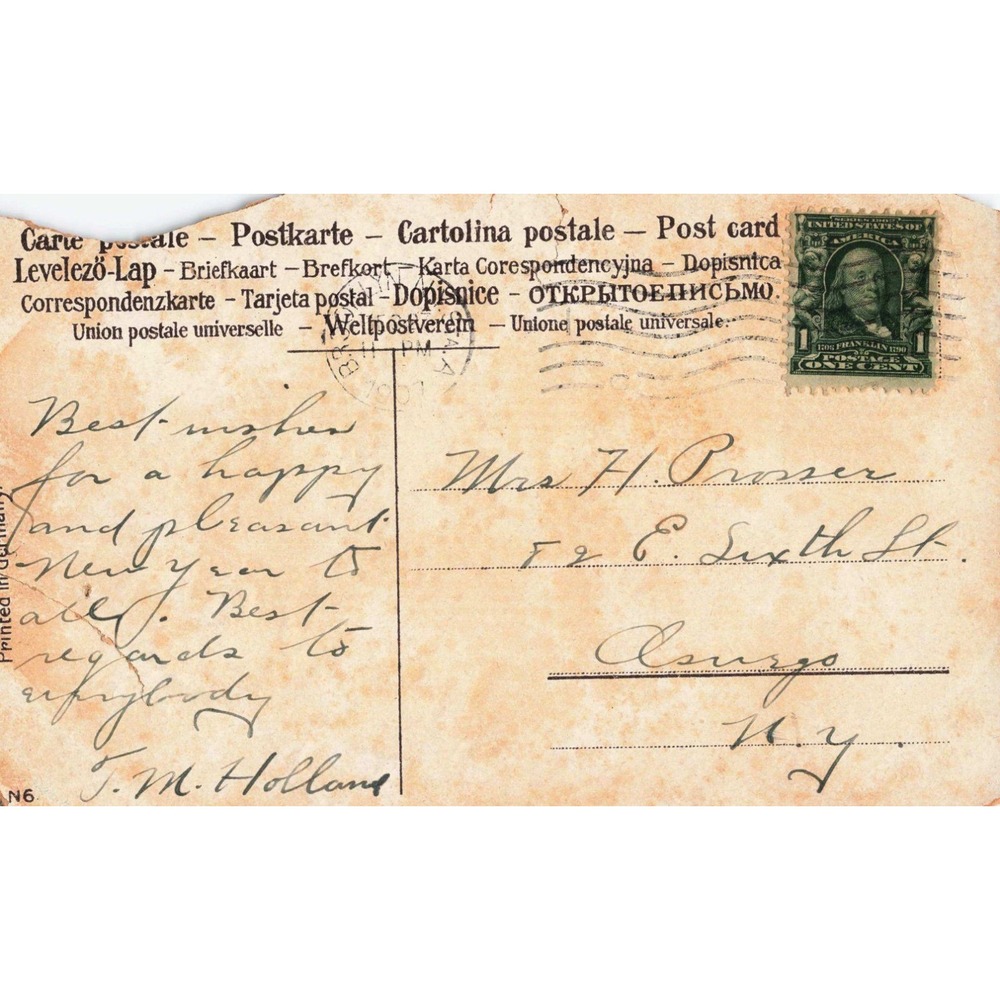 Carte postale – Postkarte – Cartolina postale – Post card
Levelező-Lap – Briefkaart – Brefkort – Karta Corespondencyjna – Dopisnica
Correspondenzkarte – Tarjeta postal – Dopisnice – ОТКРЫТОЕПИСЬМО.
Union postale universelle – Weltpostverein – Unione postale universale.
11 PM
SERIES 1902
UNITED STATES OF
AMERICA
1706 FRANKLIN 1790
1 POSTAGE 1
ONE CENT
Best wishes
for a happy
and pleasant
New Year to
all. Best
regards to
everybody
T. M. Holland
Mrs H. Prosser
52 E. Sixth St.
Oswego
N.Y.
Printed in Germany.
N6